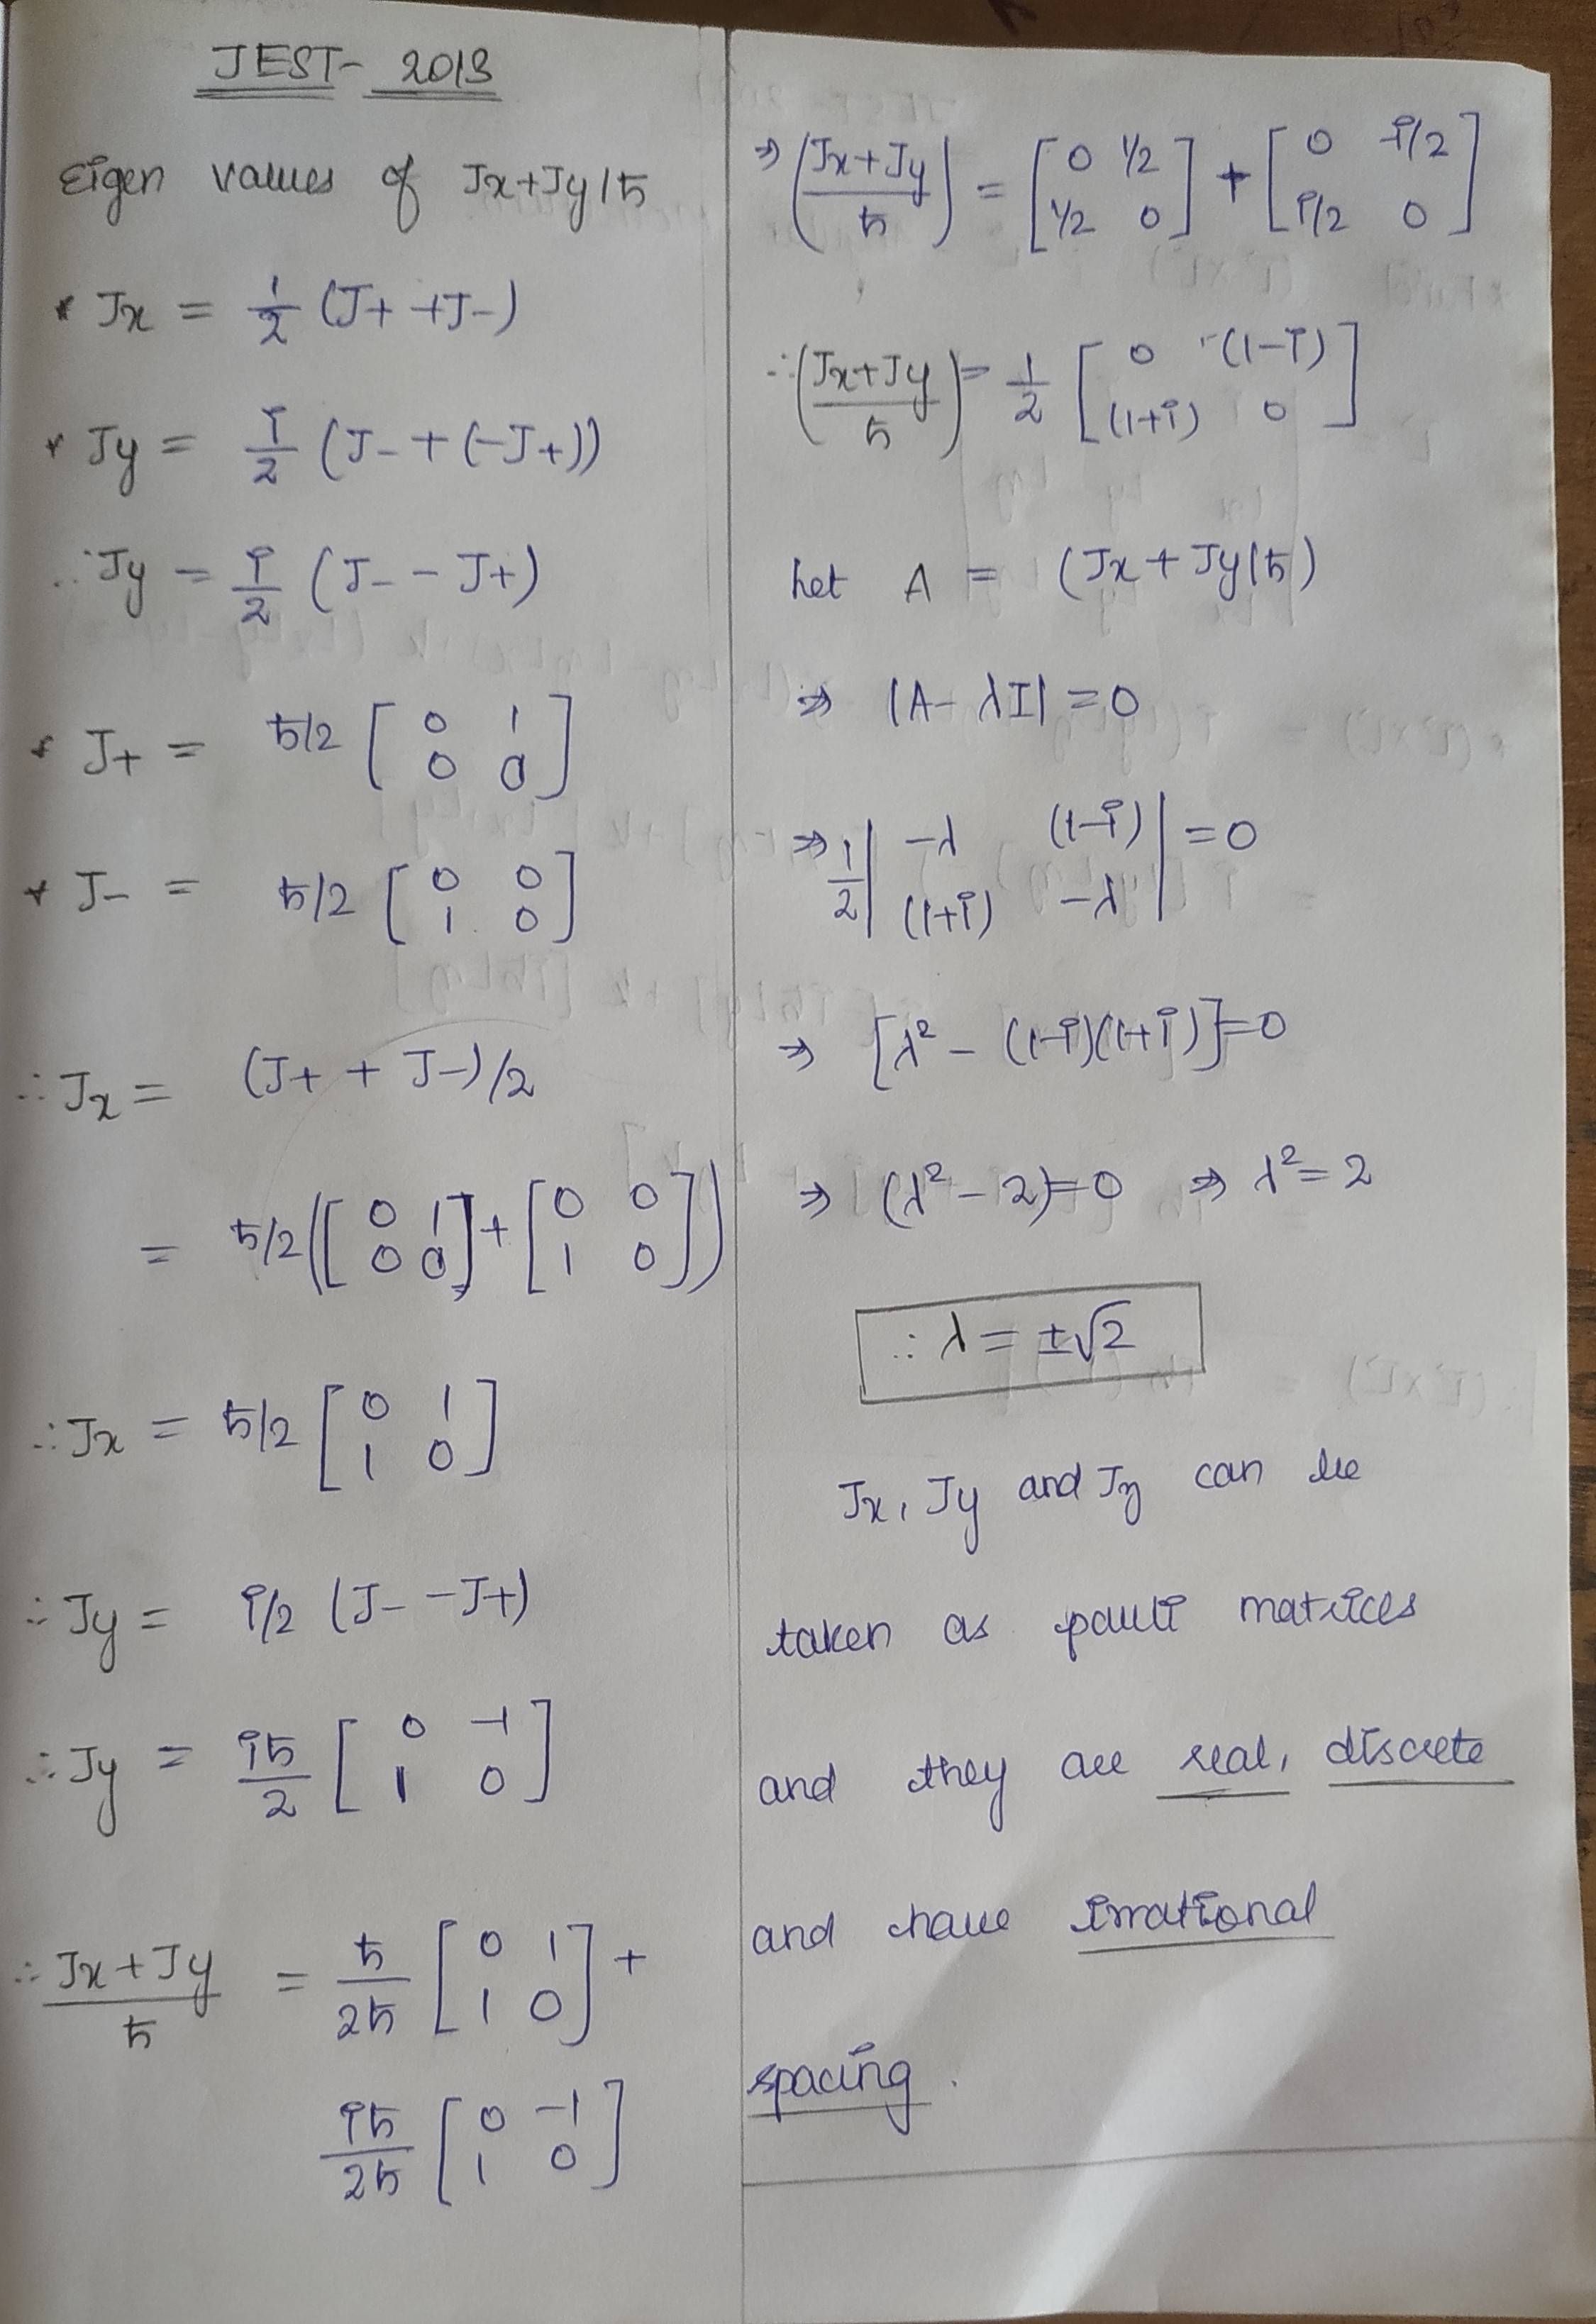 JEST- 2013
Eigen values of Jx+Jy/ħ
* Jx = 1/2 (J+ +J-)
* Jy = i/2 (J- + (-J+))
∴ Jy = i/2 (J- - J+)
* J+ = ħ/2 [0 1; 0 0]
* J- = ħ/2 [0 0; 1 0]
∴ Jx = (J+ + J-)/2
= ħ/2([0 1; 0 0] + [0 0; 1 0])
∴ Jx = ħ/2 [0 1; 1 0]
∴ Jy = i/2 (J- -J+)
∴ Jy = iħ/2 [0 -1; 1 0]
∴ Jx+Jy/ħ = ħ/2ħ [0 1; 1 0] +
iħ/2ħ [0 -1; 1 0]
⇒ (Jx+Jy/ħ) = [0 1/2; 1/2 0] + [0 -i/2; i/2 0]
∴ (Jx+Jy/ħ) = 1/2 [0 (1-i); (1+i) 0]
Let A = (Jx+Jy/ħ)
⇒ |A- λI| = 0
⇒ 1/2 |-λ (1-i); (1+i) -λ| = 0
⇒ [λ² - (1-i)(1+i)] = 0
⇒ (λ² - 2) = 0 ⇒ λ² = 2
∴ λ = ±√2
Jx, Jy and Jz can be
taken as pauli matrices
and they are real, discrete
and have irrational
spacing.